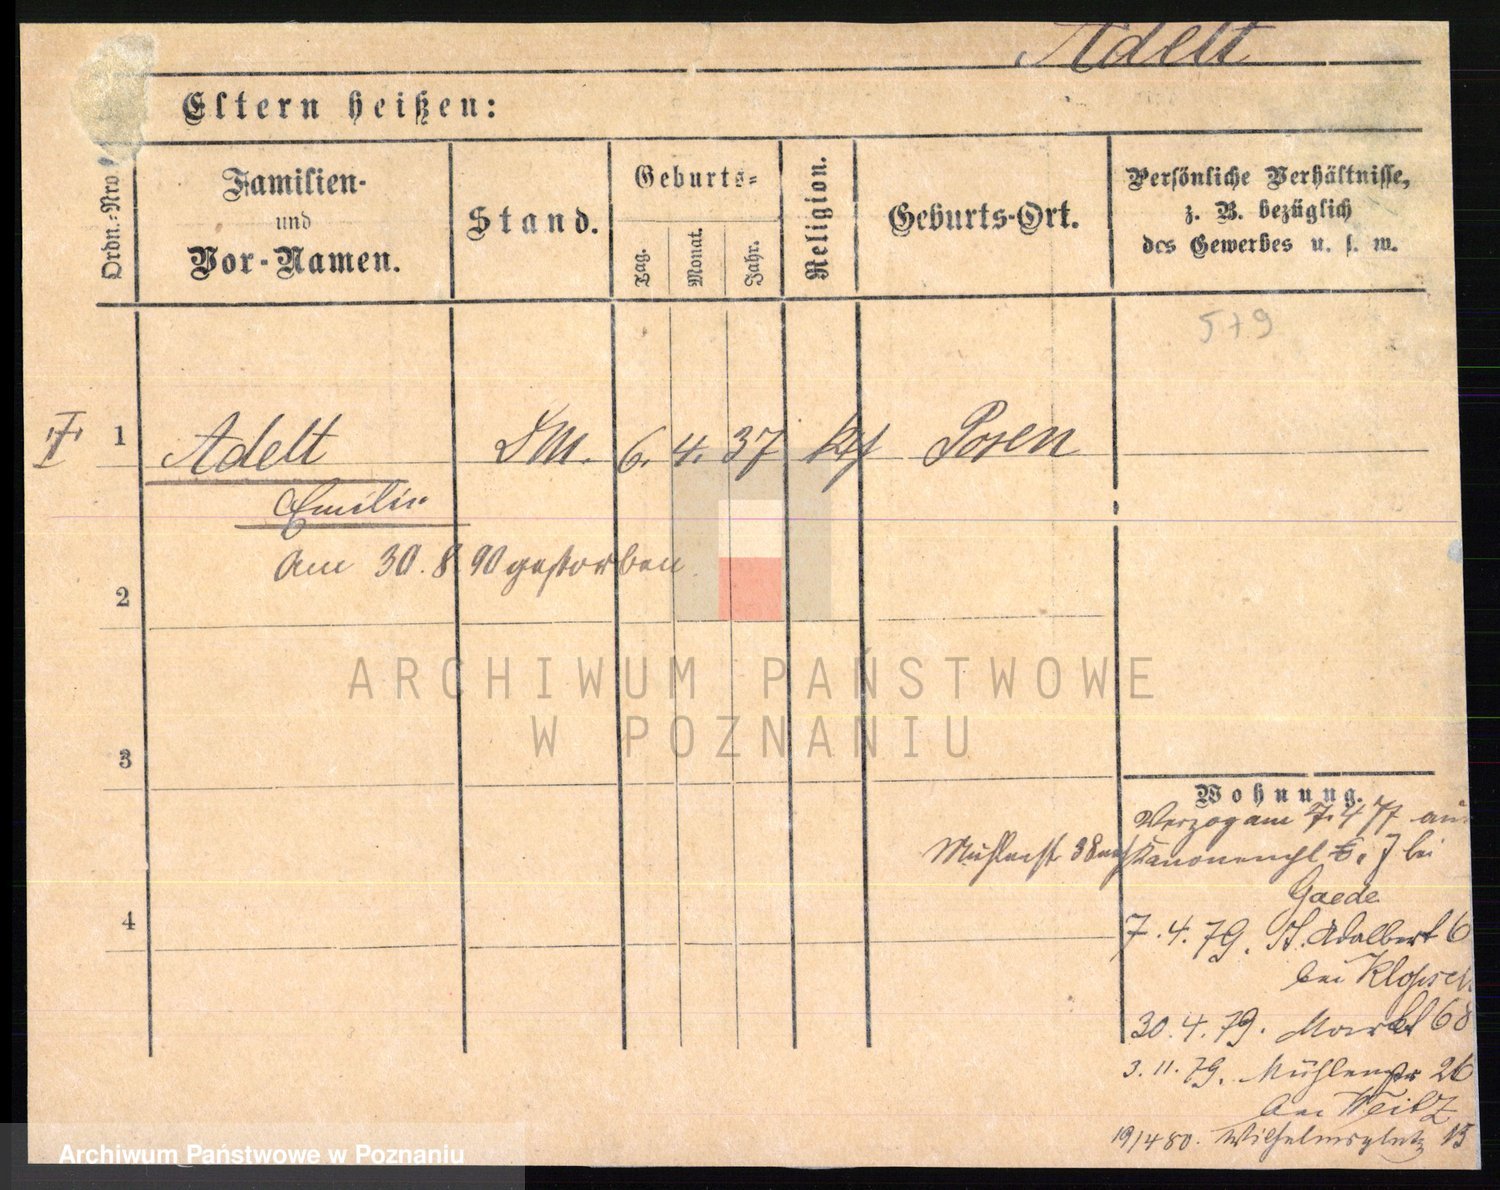 Adelt
Eltern heißen:
Ordn.-Nro
Familien-
und
Vor-Namen.
Stand.
Geburts-
Tag.
Monat.
Jahr.
Religion.
Geburts-Ort.
Persönliche Verhältnisse,
z. B. bezüglich
des Gewerbes u. s. w.
579
1 Adelt DM. 6. 4. 37 Posen
Emilie
am 30. 8 90 gestorben
2
ARCHIWUM PAŃSTWOWE
W POZNANIU
3
Wohnung.
Verzog am 7. 4 77 aus
Mühlenstr 38 nach Kanonenpl bei
Gaede
4
7. 4. 79. St. Adalbert 6
bei
30. 4. 79. Markt 68
3. 11. 79. Mühlenstr 26
bei
19/4 80. Wilhelmsplatz 15
Archiwum Państwowe w Poznaniu